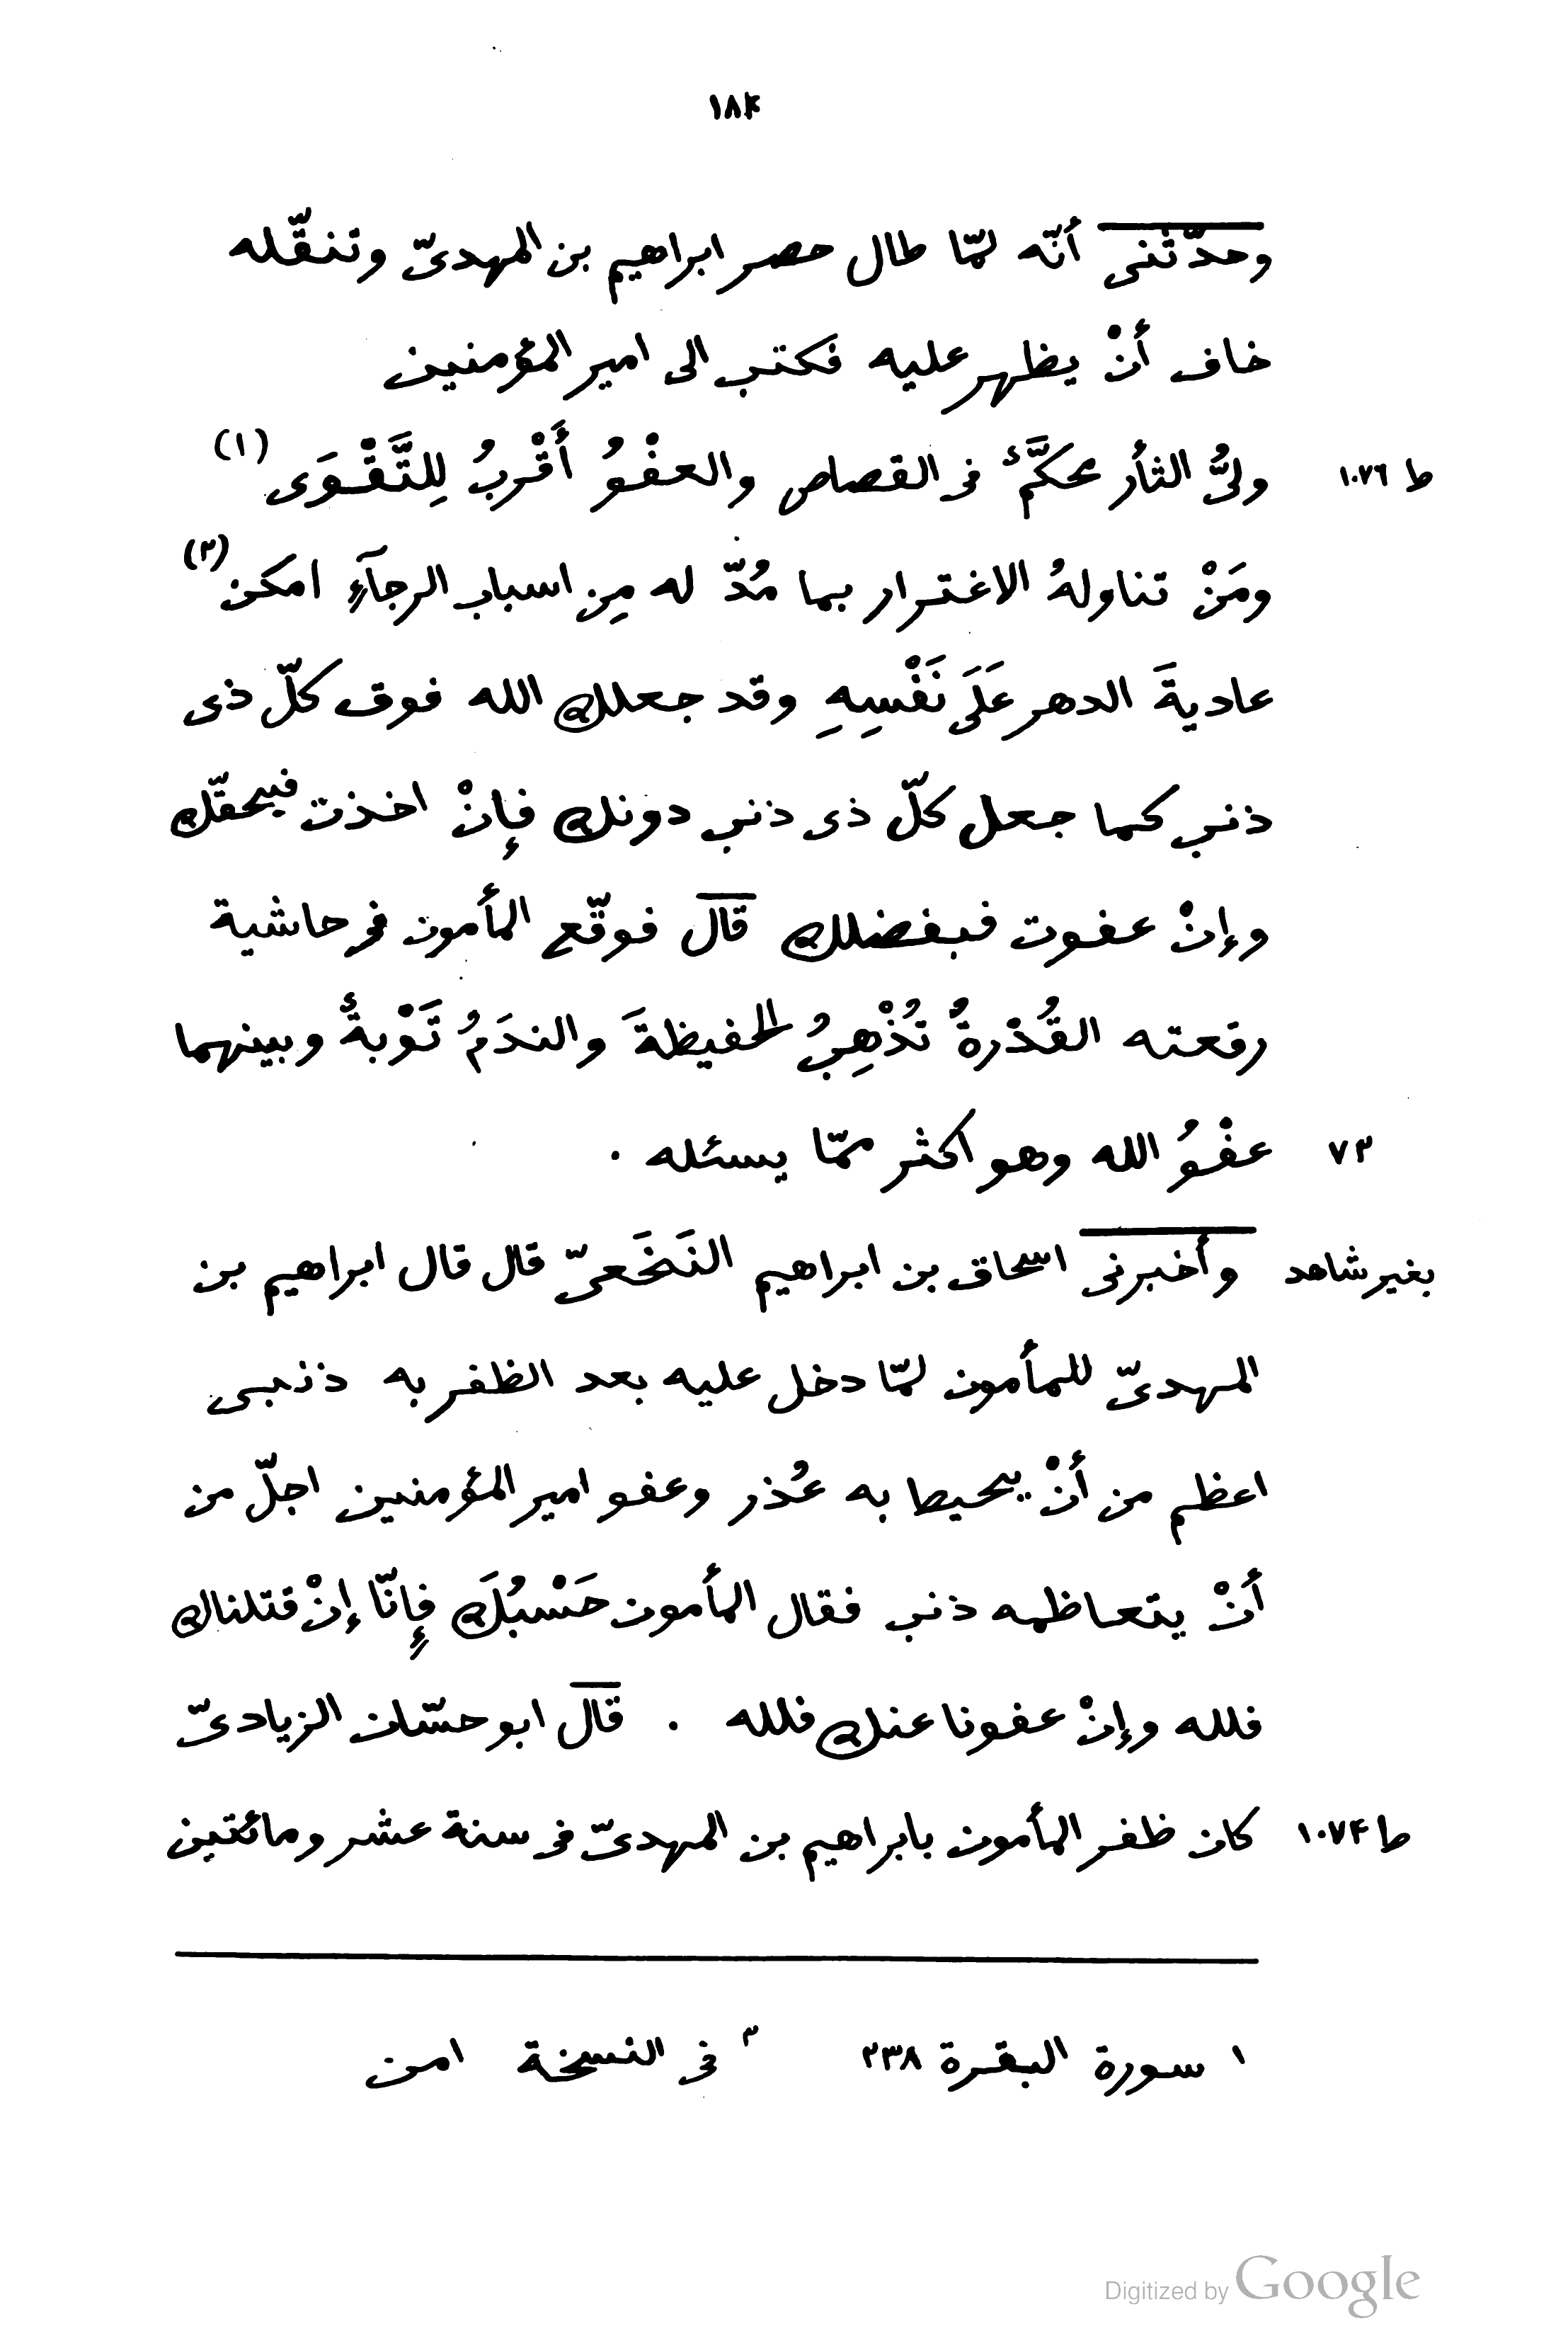 ١٨٤
وحدّثنى أنّه لمّا طال حصر ابراهيم بن المهدىّ وتنقّله
خاف أنْ يظهر عليه فكتب الى امير المؤمنين
ط ١٠٧٦ ولىُّ الثأر محكَّمٌ فى القصاص والعفْوُ أَقْربُ لِلتَّقْوَى (١)
ومَنْ تناولهُ الاغترار بما مُدّ له مِن اسباب الرجآءِ امكن (٢)
عاديةَ الدهر عَلَى نَفْسِهِ وقد جعلك الله فوق كلّ ذى
ذنب كما جعل كلّ ذى ذنب دونك فإنْ اخذت فبحقّك
وإنْ عفوت فبفضلك قال فوقّع المأمون فى حاشية
رقعته القُدْرةُ تُذْهِبُ الحفيظةَ والندَمُ تَوْبةٌ وبينهما
٧٣ عفْوُ الله وهو اكثر ممّا يسئله .
بغير شاهد وأخبرنى اسحاق بن ابراهيم النَخَعىّ قال قال ابراهيم بن
المهدىّ للمأمون لمّا دخل عليه بعد الظفر به ذنبى
اعظم من أنْ يحيط به عُذر وعفو امير المؤمنين اجلّ من
أنْ يتعاظمه ذنب فقال المأمون حَسْبُكَ فإنّا إنْ قتلناك
فلله وإنْ عفونا عنك فلله . قال ابو حسّان الزيادىّ
ط ١٠٧٤ كان ظفر المأمون بابراهيم بن المهدىّ فى سنة عشر ومائتين
١ سورة البقرة ٢٣٨ ٢ فى النسخة امن
Digitized by Google